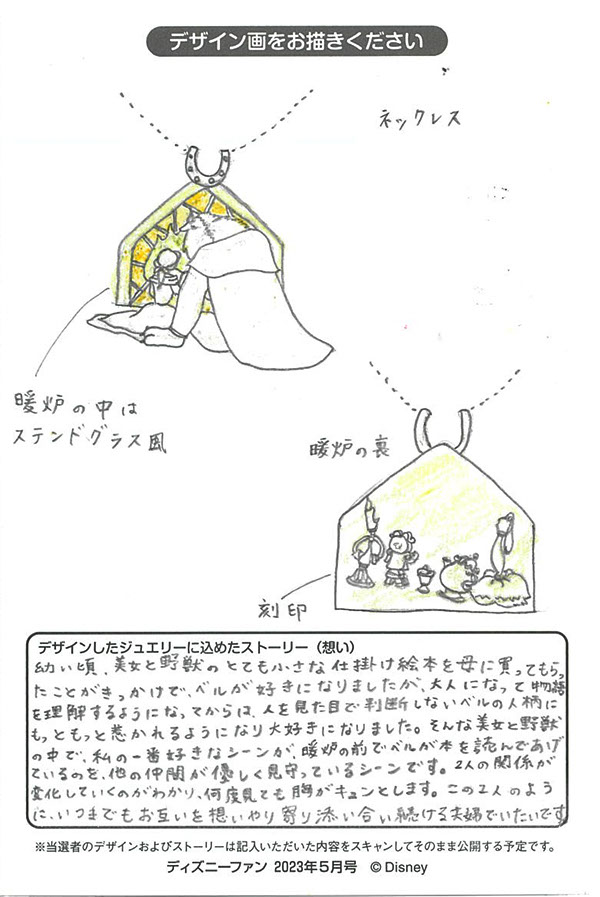 デザイン画をお描きください
ネックレス
暖炉の中は
ステンドグラス風
暖炉の裏
刻印
デザインしたジュエリーに込めたストーリー（想い）
幼い頃、美女と野獣のとても小さな仕掛け絵本を母に買ってもらっ
たことがきっかけで、ベルが好きになりましたが、大人になって物語
を理解するようになってからは、人を見た目で判断しないベルの人柄に
もっともっと惹かれるようになり大好きになりました。そんな美女と野獣
の中で、私の一番好きなシーンが、暖炉の前でベルが本を読んであげ
ているのを、他の仲間が優しく見守っているシーンです。2人の関係が
変化していくのがわかり、何度見ても胸がキュンとします。この2人のよう
に、いつまでもお互いを想いやり寄り添い合い続ける夫婦でいたいです
※当選者のデザインおよびストーリーは記入いただいた内容をスキャンしてそのまま公開する予定です。
ディズニーファン 2023年5月号 ©Disney